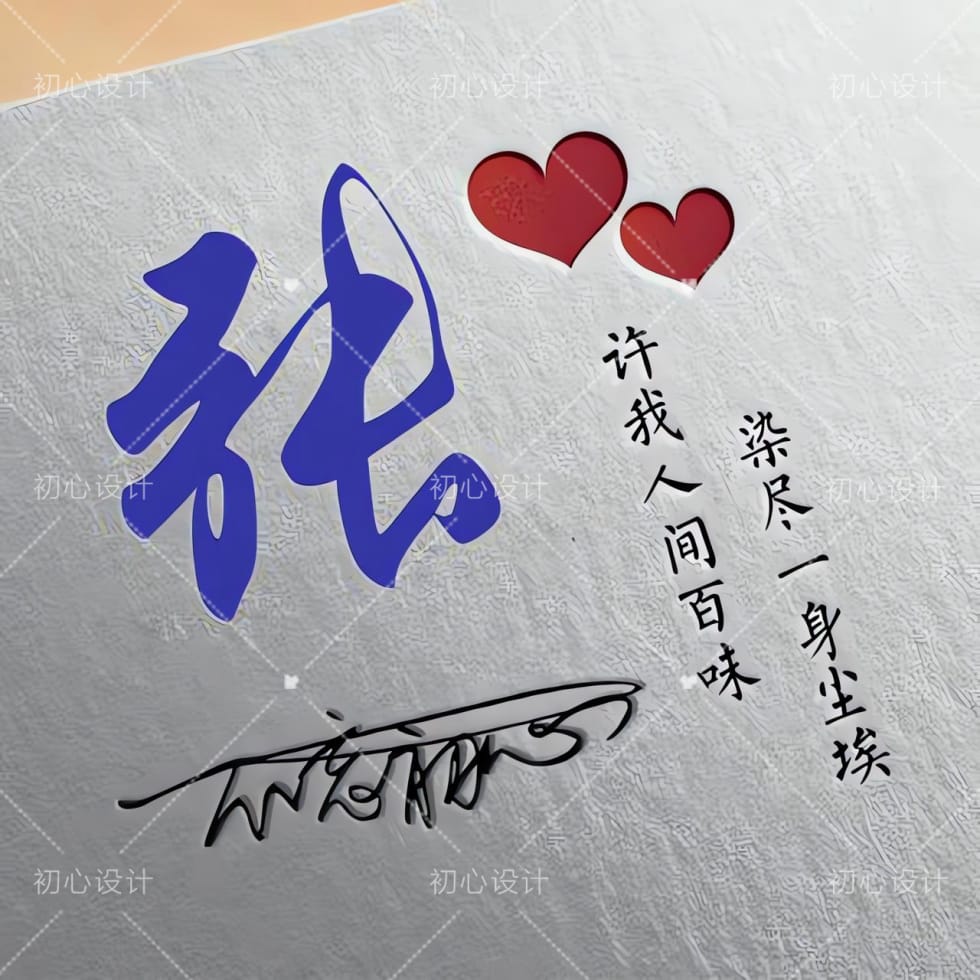 张
许我人间百味
染尽一身尘埃
初心设计
初心设计
初心设计
初心设计
初心设计
初心设计
初心设计
初心设计
初心设计